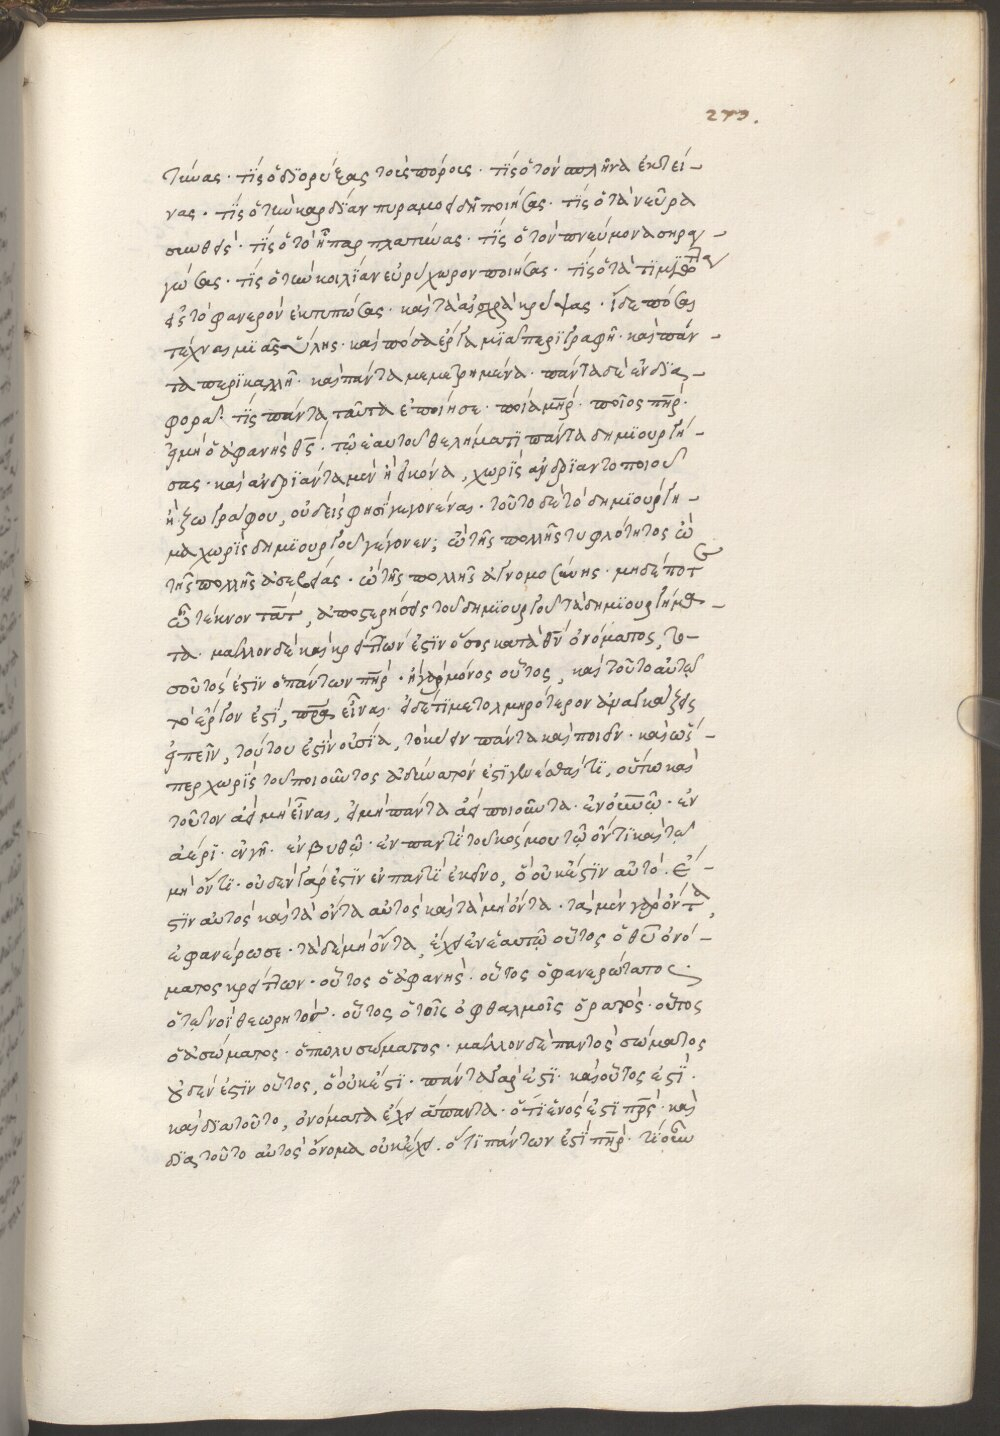 279.
τύνας · τίς ὁ διορύξας τοὺς πόρους · τίς ὁ τὸν σπλῆνα ἐκτεί-
νας · τίς ὁ τὴν καρδίαν πυραμοειδῆ ποιήσας · τίς ὁ τὰ νεῦρα
συνθείς · τίς ὁ τὸ ἧπαρ πλατύνας · τίς ὁ τὸν πνεύμονα σηραγ-
γώσας · τίς ὁ τὴν κοιλίαν εὐρύχωρον ποιήσας · τίς ὁ τὰ τιμιώτατα
εἰς τὸ φανερὸν ἐκτυπώσας · καὶ τὰ αἰσχρὰ κρύψας · ἴδε πόσαι
τέχναι μιᾶς ὕλης · καὶ πόσα ἔργα μιᾶ περιγραφῇ · καὶ πάν-
τα περικαλλῆ · καὶ πάντα μεμετρημένα · πάντα δὲ ἐν δια-
φορᾶ · τίς πάντα ταῦτα ἐποίησε · ποία μηρ · ποῖος πηρ ·
εἰ μὴ ὁ ἀφανὴς θς · τῷ ἑαυτοῦ θελήματι πάντα δημιουργή-
σας · καὶ ἀνδριάντα μὲν ἢ εἰκόνα, χωρὶς ἀνδριαντοποιοῦ
ἢ ζωγράφου, οὐδείς φησι γεγονέναι · τοῦτο δὲ τὸ δημιούργη-
μα χωρὶς δημιουργοῦ γέγονεν; ὢ τῆς πολλῆς τυφλότητος ὢ
τῆς πολλῆς ἀσεβείας · ὢ τῆς πολλῆς ἀγνομοσύνης · μηδέποτε
ὦ τέκνον τατ, ἀποστερήσεις τοῦ δημιουργοῦ τὰ δημιουργήμα-
τα · μᾶλλον δὲ καὶ κρείττων ἐστὶν ὅσος κατὰ θν ὀνόματος, το-
σοῦτός ἐστιν ὁ πάντων πηρ · ἦ γὰρ μόνος οὗτος, καὶ τοῦτο αὐτῷ
τὸ ἔργον ἐστί, πρα εἶναι · εἰ δέ τί με τολμηρότερον ἀναγκάζεις
εἰπεῖν, τούτου ἐστὶν οὐσία, τὸ κύειν πάντα καὶ ποιεῖν · καὶ ὥς-
περ χωρὶς τοῦ ποιοῦντος ἀδύνατόν ἐστι γενέσθαι τί, οὕτω καὶ
τοῦτον ἀεὶ μὴ εἶναι, εἰ μὴ πάντα ἀεὶ ποιοῦντα · ἐν οὐνῷ · ἐν
ἀέρι · ἐν γῆ · ἐν βυθῷ · ἐν παντὶ τοῦ κόσμου τῷ ὄντι καὶ τῷ
μὴ ὄντι · οὐδὲν γάρ ἐστιν ἐν παντὶ ἐκείνο, ὃ οὐκ ἔστιν αὐτό · ἔ-
στιν αὐτὸς καὶ τὰ ὄντα αὐτὸς καὶ τὰ μὴ ὄντα · τὰ μὲν γὰρ ὄντα,
ἐφανέρωσε · τὰ δὲ μὴ ὄντα, ἔχει ἐν ἑαυτῷ οὗτος ὁ θυ ὀνό-
ματος κρείττων · οὗτος ὁ ἀφανής · οὗτος ὁ φανερώτατος ·
ὁ τῷ νοῒ θεωρητός · οὗτος ὁ τοῖς ὀφθαλμοῖς ὁρατός · οὗτος
ὁ ἀσώματος · ὁ πολυσώματος · μᾶλλον δὲ παντὸς σώματος
οὐδέν ἐστιν οὗτος, ὃ οὐκ ἔστι · πάντα γάρ ἐστι · καὶ οὗτος ἐστί ·
καὶ διατοῦτο, ὀνόματα ἔχει ἅπαντα · ὅτι ἑνός ἐστι πρς · καὶ
διατοῦτο αὐτὸς ὄνομα οὐκ ἔχει · ὅτι πάντων ἐστὶ πηρ · τίς οὖν